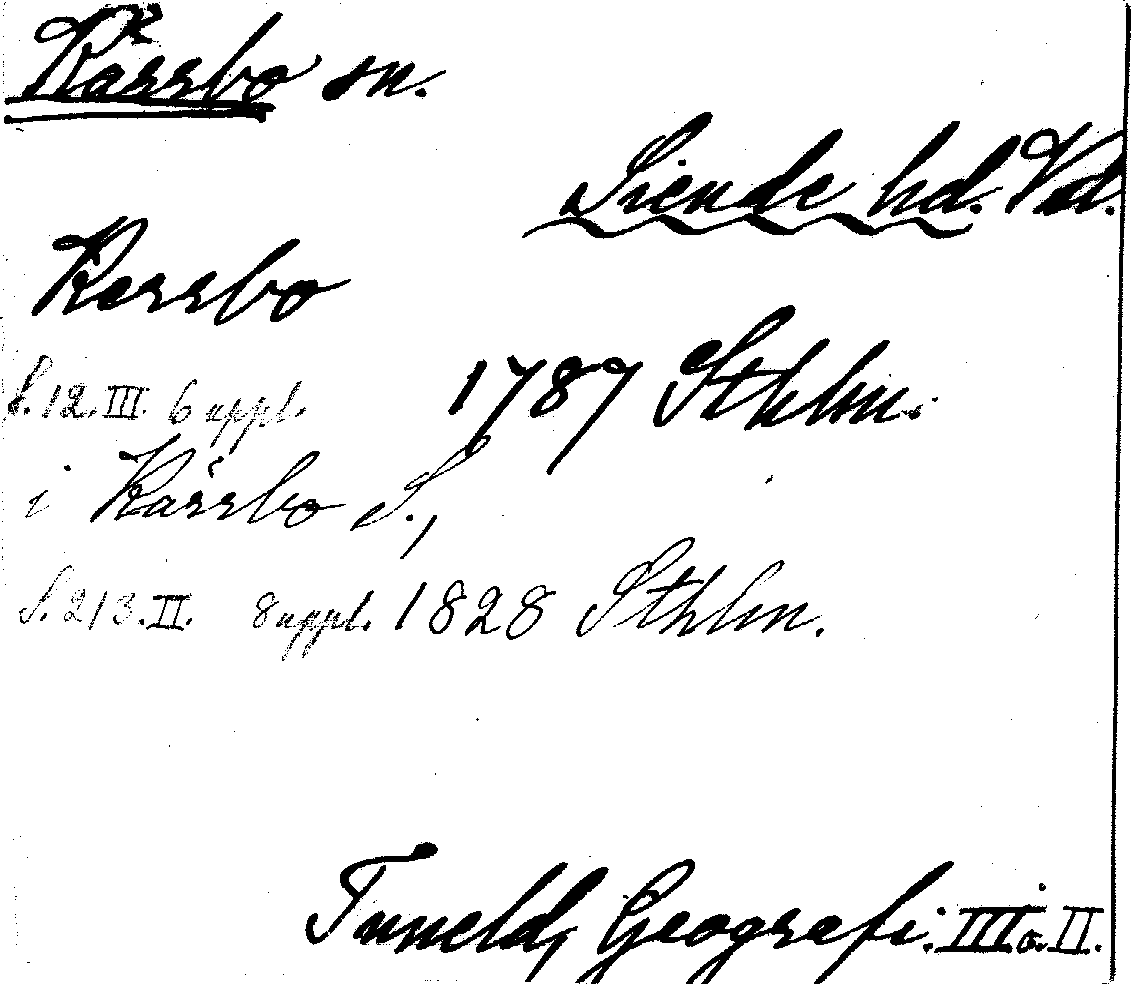 Kärrbo sn.
Siende hd. Vstl.
Kerrbo
S. 12. III. 6 uppl. 1787 Sthlm.
i Kärrbo S.,
S. 213. II. 8 uppl. 1828 Sthlm.
Tuneld, Geografi. III o. II.